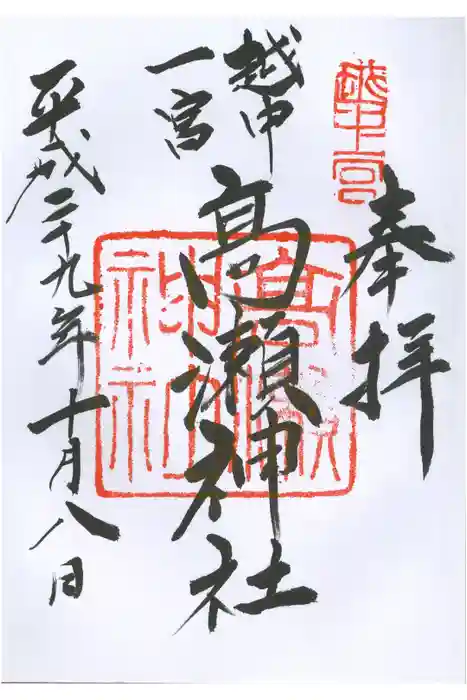 奉拝
越中一宮
越中
一宮
高瀬神社
高瀬神社
平成二十九年十月八日